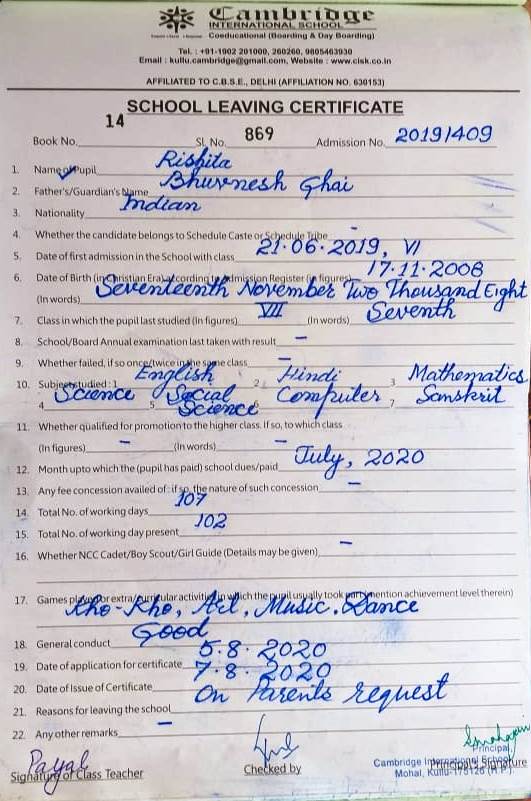 Cambridge
INTERNATIONAL SCHOOL
Coeducational (Boarding & Day Boarding)
Tel. : +91-1902 201000, 260260, 9805463930
Email : kullu.cambridge@gmail.com, Website : www.cisk.co.in
AFFILIATED TO C.B.S.E., DELHI (AFFILIATION NO. 630153)
SCHOOL LEAVING CERTIFICATE
Book No. 14 Sl. No. 869 Admission No. 2019/409
1. Name of Pupil Rishita
2. Father's/Guardian's Name Bhuvnesh Ghai
3. Nationality Indian
4. Whether the candidate belongs to Schedule Caste or Schedule Tribe -
5. Date of first admission in the School with class 21.06.2019, VI
6. Date of Birth (in Christian Era) according to Admission Register (in figures) 17.11.2008
(In words) Seventeenth November Two Thousand Eight
7. Class in which the pupil last studied (In figures) VII (In words) Seventh
8. School/Board Annual examination last taken with result -
9. Whether failed, if so once/twice in the same class -
10. Subject studied : 1 English 2 Hindi 3 Mathematics
4 Science 5 Social Science 6 Computer 7 Sanskrit
11. Whether qualified for promotion to the higher class. If so, to which class
(In figures) - (In words) -
12. Month upto which the (pupil has paid) school dues/paid July, 2020
13. Any fee concession availed of: if so, the nature of such concession -
14. Total No. of working days 107
15. Total No. of working day present 102
16. Whether NCC Cadet/Boy Scout/Girl Guide (Details may be given) -
17. Games played or extra/curricular activities in which the pupil usually took part (mention achievement level therein)
Kho-Kho, Art, Music, Dance
18. General conduct Good
19. Date of application for certificate 5.8.2020
20. Date of Issue of Certificate 7.8.2020
21. Reasons for leaving the school On Parents request
22. Any other remarks -
Payal
Signature of Class Teacher Checked by Principal's Signature
Principal
Cambridge International School
Mohal, Kullu-175126 (H.P.)